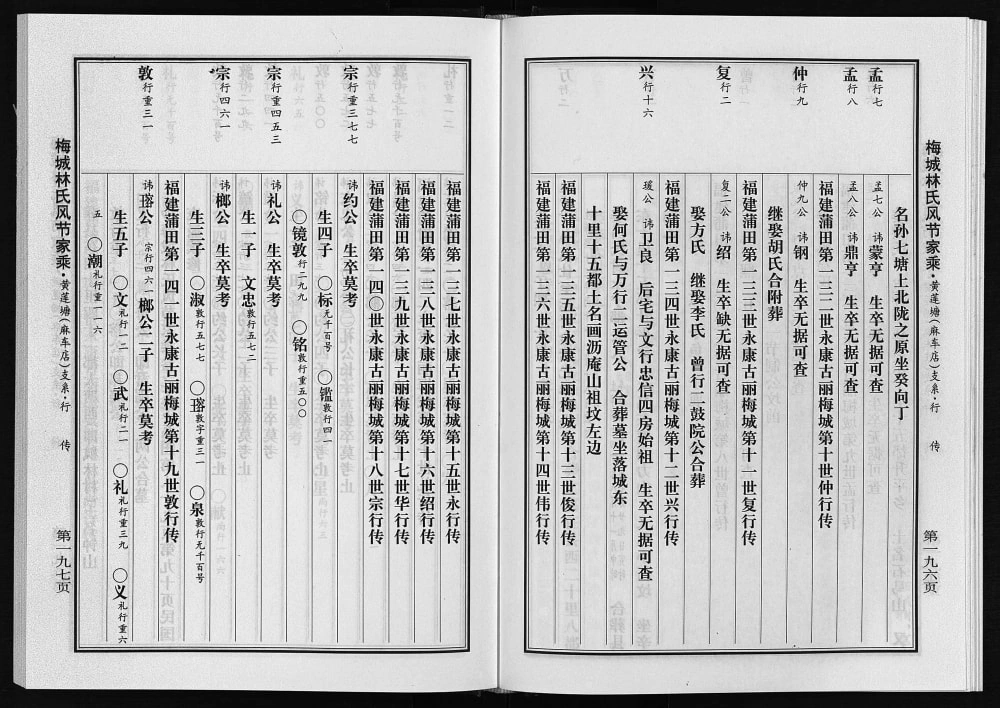 梅城林氏风节家乘·黄莲塘(麻车店)支系·行传
第一九六页
名孙七塘上北陇之原坐癸向丁
孟行七
孟七公 讳蒙亨 生卒无据可查
孟行八
孟八公 讳鼎亨 生卒无据可查
福建蒲田第一三二世永康古丽梅城第十世仲行传
仲行九
仲九公 讳钢 生卒无据可查
继娶胡氏合附葬
福建蒲田第一三三世永康古丽梅城第十一世复行传
复行二
复二公 讳绍 生卒缺无据可查
娶方氏 继娶李氏 曾行二鼓院公合葬
福建蒲田第一三四世永康古丽梅城第十二世兴行传
兴行十六
瑗公 讳卫良 后宅与文行忠信四房始祖 生卒无据可查
娶何氏与万行二运管公 合葬墓坐落城东
十里十五都土名画沥庵山祖坟左边
福建蒲田第一三五世永康古丽梅城第十三世俊行传
福建蒲田第一三六世永康古丽梅城第十四世伟行传
福建蒲田第一三七世永康古丽梅城第十五世永行传
福建蒲田第一三八世永康古丽梅城第十六世绍行传
福建蒲田第一三九世永康古丽梅城第十七世华行传
福建蒲田第一四〇世永康古丽梅城第十八世宗行传
宗行重三七七
讳约公 生卒莫考
生四子 〇标元千百号 〇鑑敦行四一
〇镜敦行二九九 〇铭敦行五〇〇
宗行重四五三
讳礼公 生卒莫考
生一子 文忠敦行五七二
宗行四六一
讳榔公 生卒莫考
生三子 〇淑敦行五七七 〇瑢敦字重三一 〇泉敦行无千百号
福建蒲田第一四一世永康古丽梅城第十九世敦行传
敦行重三一
讳瑢公 宗行四六一榔公二子 生卒莫考
生五子 〇文礼行一二 〇武礼行二一 〇礼礼行重三九 〇义礼行重六五
〇潮礼行重一一六
梅城林氏风节家乘·黄莲塘(麻车店)支系·行传
第一九七页